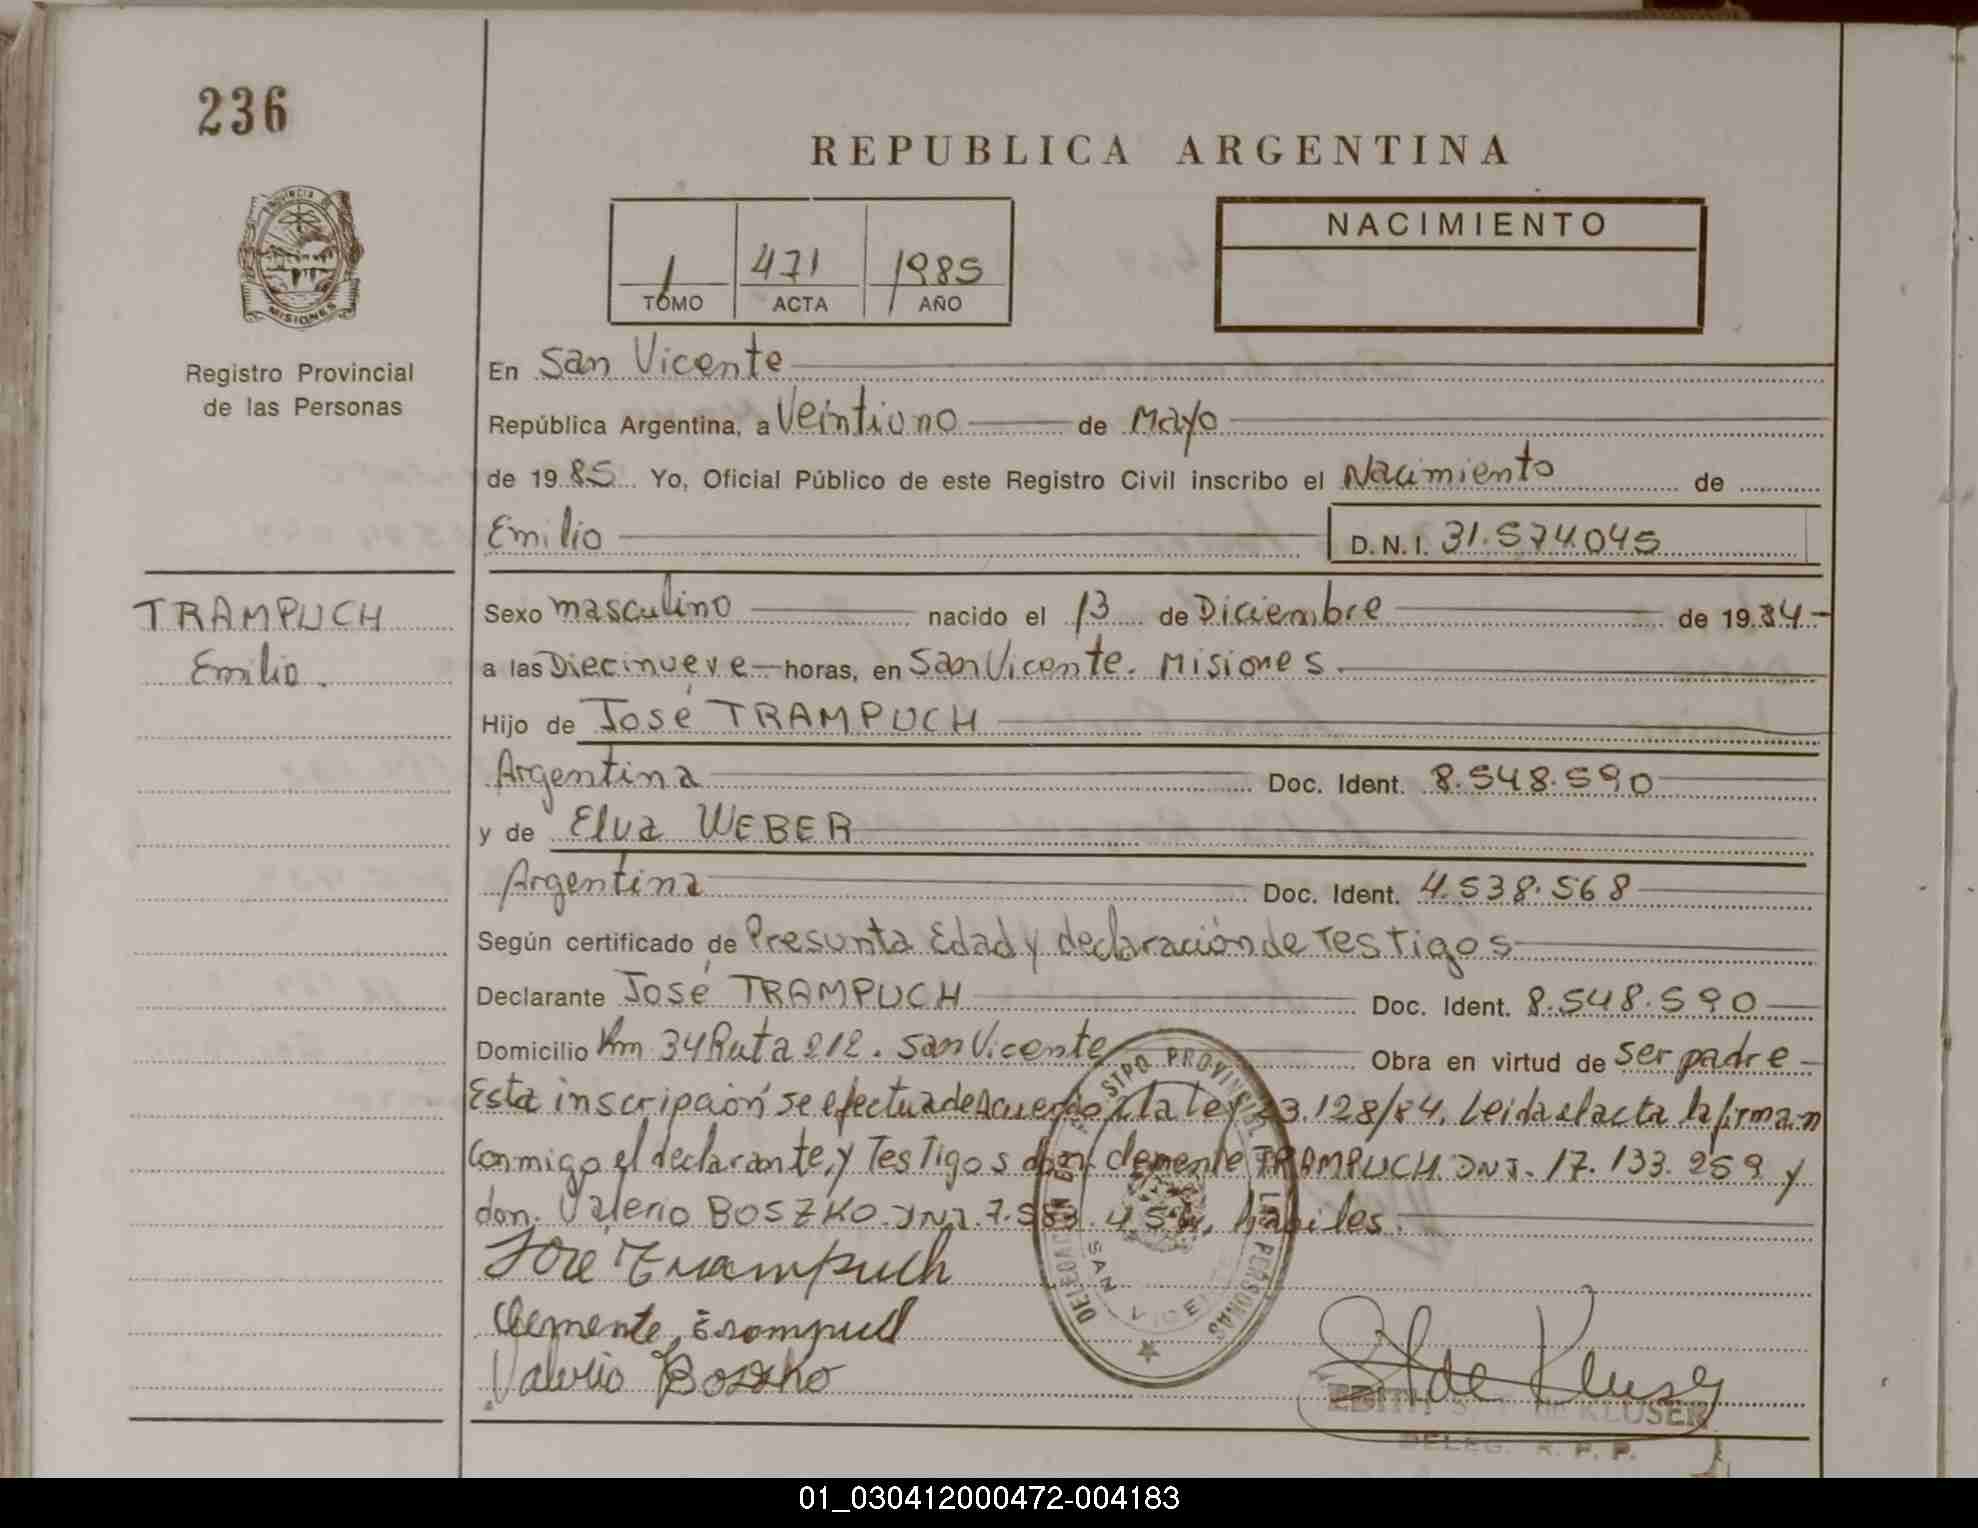 236
REPUBLICA ARGENTINA
PROVINCIA DE
MISIONES
NACIMIENTO
1 471 1985
TOMO ACTA AÑO
Registro Provincial
de las Personas
En San Vicente
República Argentina, a Veintiuno de Mayo
de 1985 Yo, Oficial Público de este Registro Civil inscribo el Nacimiento de
Emilio D.N.I. 31.574.045
TRAMPUCH
Emilio.
Sexo masculino nacido el 13 de Diciembre de 1984
a las Diecinueve horas, en San Vicente. Misiones.
Hijo de José TRAMPUCH
Argentina Doc. Ident. 8.548.590
y de Elva WEBER
Argentina Doc. Ident. 4.538.568
Según certificado de Presunta Edad y declaración de Testigos
Declarante José TRAMPUCH Doc. Ident. 8.548.590
Domicilio Km 34 Ruta 212. San Vicente Obra en virtud de ser padre
Esta inscripción se efectua de acuerdo a la ley 23.128/84. Leida el acta la firman
conmigo el declarante, y Testigos don Clemente TRAMPUCH. DNI. 17.133.259 y
don. Valerio BOSZKO. DNI. 7. habiles.
José Trampuch
Clemente Trampuch
Valerio Boszko
PROVINCIAL DE LAS PERSONAS
DELEGACION
SAN VICENTE
EDITH S. T. de KLUSER
DELEG. R. P. P.
01_030412000472-004183